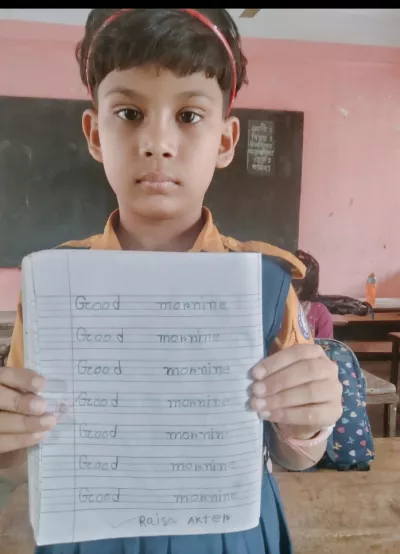 Good mornine
Good mornine
Good mornine
Good mornine
Good mornin
Good mornine
Good mornine
Raisa Akter